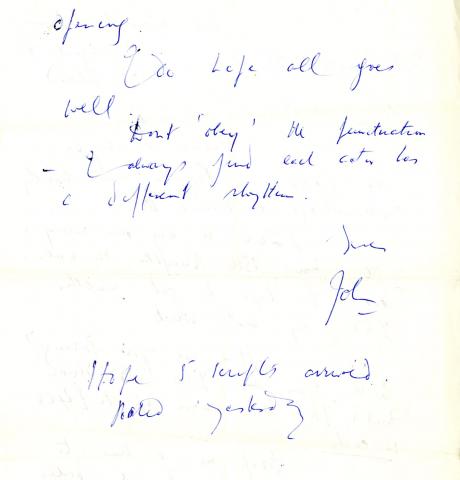 opening.
I do hope all goes
well.
Dont 'obey' the punctuation
- I always find each actor has
a different rhythm.
John
Hope 5 scripts arrived.
Posted yesterday